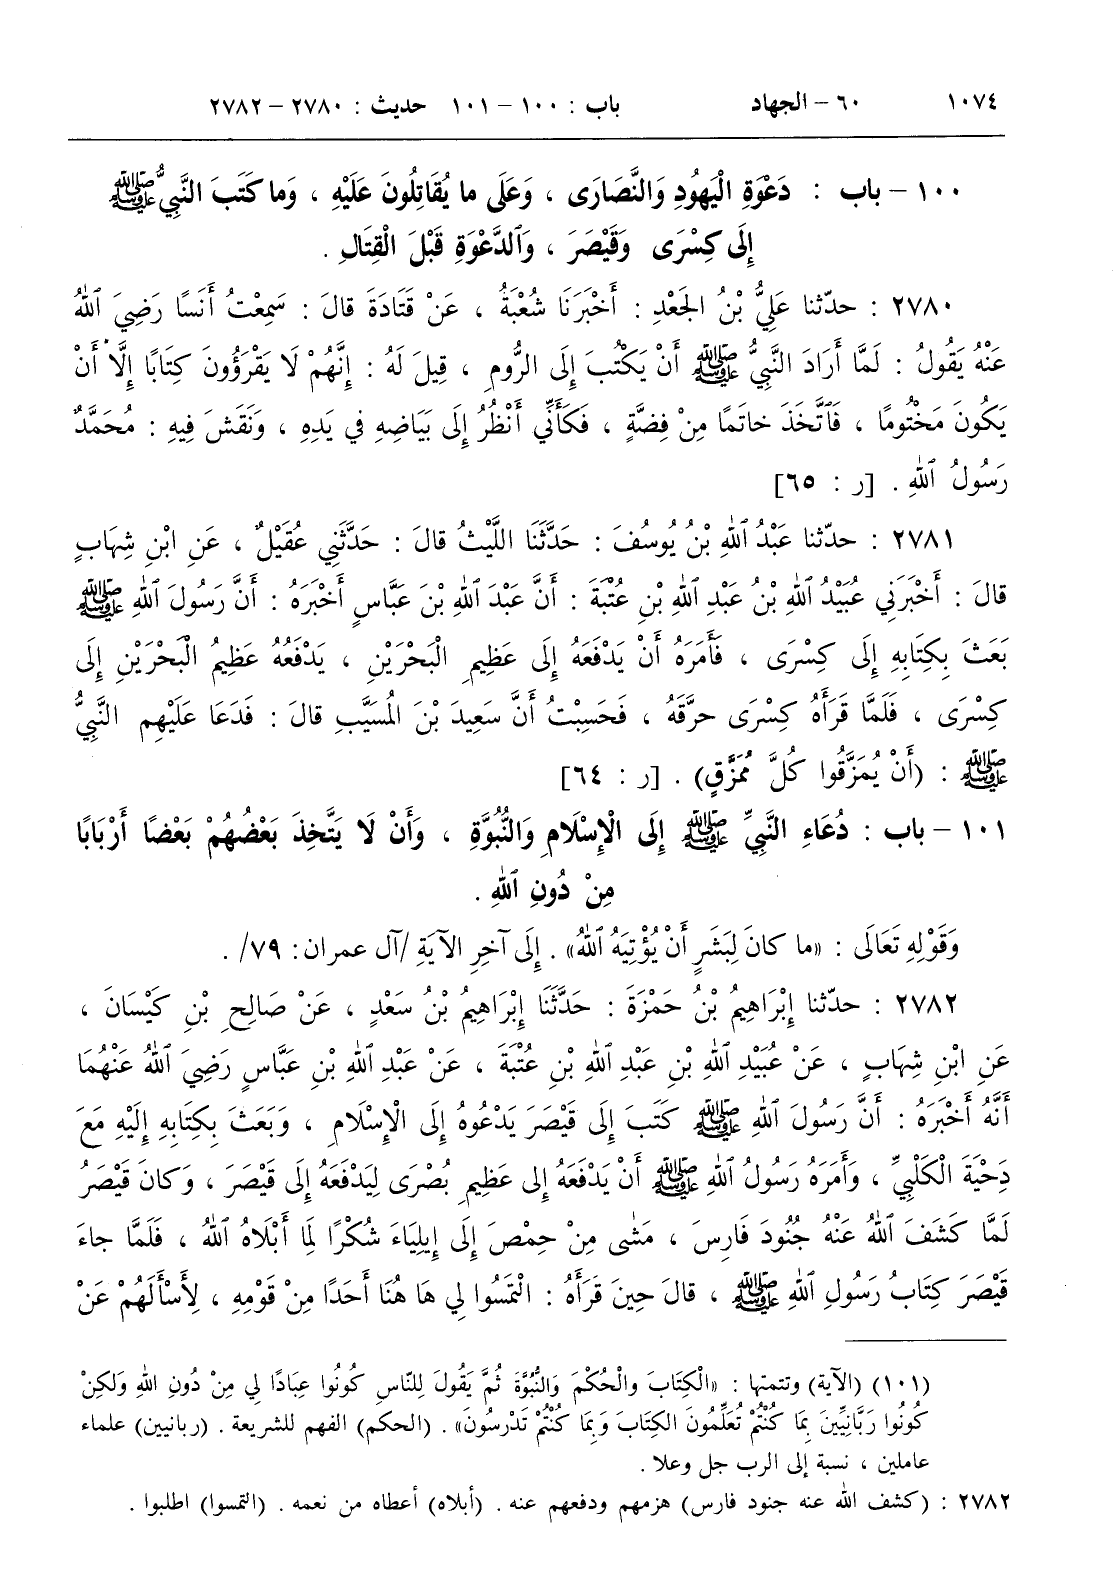 ١٠٧٤ ٦٠ – الجهاد باب : ١٠٠ – ١٠١ حديث : ٢٧٨٠ – ٢٧٨٢
١٠٠ – باب : دَعْوَةِ الْيَهُودِ وَالنَّصَارَى ، وَعَلَى ما يُقَاتِلُونَ عَلَيْهِ ، وَما كَتَبَ النَّبِيُّ ﷺ
إِلَى كِسْرَى وَقَيْصَرَ ، وَٱلدَّعْوَةِ قَبْلَ الْقِتَالِ .
٢٧٨٠ : حدّثنا عَلِيُّ بْنُ الجَعْدِ : أَخْبَرَنَا شُعْبَةُ ، عَنْ قَتَادَةَ قالَ : سَمِعْتُ أَنَسًا رَضِيَ ٱللهُ
عَنْهُ يَقُولُ : لَمَّا أَرَادَ النَّبِيُّ ﷺ أَنْ يَكْتُبَ إِلَى الرُّومِ ، قِيلَ لَهُ : إِنَّهُمْ لَا يَقْرَؤُونَ كِتَابًا إِلَّا أَنْ
يَكُونَ مَخْتُومًا ، فَٱتَّخَذَ خاتَمًا مِنْ فِضَّةٍ ، فَكَأَنِّي أَنْظُرُ إِلَى بَيَاضِهِ في يَدِهِ ، وَنَقَشَ فِيهِ : مُحَمَّدٌ
رَسُولُ ٱللهِ . [ر : ٦٥]
٢٧٨١ : حدّثنا عَبْدُ ٱللهِ بْنُ يُوسُفَ : حَدَّثَنَا اللَّيْثُ قالَ : حَدَّثَنِي عُقَيْلٌ ، عَنِ ابْنِ شِهَابٍ
قالَ : أَخْبَرَنِي عُبَيْدُ ٱللهِ بْنُ عَبْدِ ٱللهِ بْنِ عُتْبَةَ : أَنَّ عَبْدَ ٱللهِ بْنَ عَبَّاسٍ أَخْبَرَهُ : أَنَّ رَسُولَ ٱللهِ ﷺ
بَعَثَ بِكِتَابِهِ إِلَى كِسْرَى ، فَأَمَرَهُ أَنْ يَدْفَعَهُ إِلَى عَظِيمِ الْبَحْرَيْنِ ، يَدْفَعُهُ عَظِيمُ الْبَحْرَيْنِ إِلَى
كِسْرَى ، فَلَمَّا قَرَأَهُ كِسْرَى حرَّقَهُ ، فَحَسِبْتُ أَنَّ سَعِيدَ بْنَ المُسَيَّبِ قالَ : فَدَعَا عَلَيْهِمِ النَّبِيُّ
ﷺ : (أَنْ يُمَزَّقُوا كُلَّ مُمَزَّقٍ) . [ر : ٦٤]
١٠١ – باب : دُعَاءِ النَّبِيِّ ﷺ إِلَى الْإِسْلَامِ وَالنُّبُوَّةِ ، وَأَنْ لَا يَتَّخِذَ بَعْضُهُمْ بَعْضًا أَرْبَابًا
مِنْ دُونِ ٱللهِ .
وَقَوْلِهِ تَعَالَى : «ما كانَ لِبَشَرٍ أَنْ يُؤْتِيَهُ ٱللهُ» . إِلَى آخِرِ الآيَةِ /آل عمران: ٧٩/ .
٢٧٨٢ : حدّثنا إِبْرَاهِيمُ بْنُ حَمْزَةَ : حَدَّثَنَا إِبْرَاهِيمُ بْنُ سَعْدٍ ، عَنْ صَالِحِ بْنِ كَيْسَانَ ،
عَنِ ابْنِ شِهَابٍ ، عَنْ عُبَيْدِ ٱللهِ بْنِ عَبْدِ ٱللهِ بْنِ عُتْبَةَ ، عَنْ عَبْدِ ٱللهِ بْنِ عَبَّاسٍ رَضِيَ ٱللهُ عَنْهُمَا
أَنَّهُ أَخْبَرَهُ : أَنَّ رَسُولَ ٱللهِ ﷺ كَتَبَ إِلَى قَيْصَرَ يَدْعُوهُ إِلَى الْإِسْلَامِ ، وَبَعَثَ بِكِتَابِهِ إِلَيْهِ مَعَ
دَحْيَةَ الْكَلْبِيِّ ، وَأَمَرَهُ رَسُولُ ٱللهِ ﷺ أَنْ يَدْفَعَهُ إِلى عَظِيمِ بُصْرَى لِيَدْفَعَهُ إِلَى قَيْصَرَ ، وَكانَ قَيْصَرُ
لَمَّا كَشَفَ ٱللهُ عَنْهُ جُنُودَ فارِسَ ، مَشَى مِنْ حِمْصَ إِلَى إِيلِيَاءَ شُكْرًا لِمَا أَبْلَاهُ ٱللهُ ، فَلَمَّا جاءَ
قَيْصَرَ كِتَابُ رَسُولِ ٱللهِ ﷺ ، قالَ حِينَ قَرَأَهُ : الْتَمِسُوا لِي هَا هُنَا أَحَدًا مِنْ قَوْمِهِ ، لِأَسْأَلَهُمْ عَنْ
(١٠١) (الآية) وتتمتها : «الْكِتَابَ والْحُكْمَ وَالنُّبُوَّةَ ثُمَّ يَقُولَ لِلنَّاسِ كُونُوا عِبَادًا لِي مِنْ دُونِ اللهِ وَلكِنْ
كُونُوا رَبَّانِيِّينَ بِمَا كُنْتُمْ تُعَلِّمُونَ الكِتَابَ وَبِمَا كُنْتُمْ تَدْرُسُونَ» . (الحكم) الفهم للشريعة . (ربانيين) علماء
عاملين ، نسبة إلى الرب جل وعلا .
٢٧٨٢ : (كشف الله عنه جنود فارس) هزمهم ودفعهم عنه . (أبلاه) أعطاه من نعمه . (التمسوا) اطلبوا .